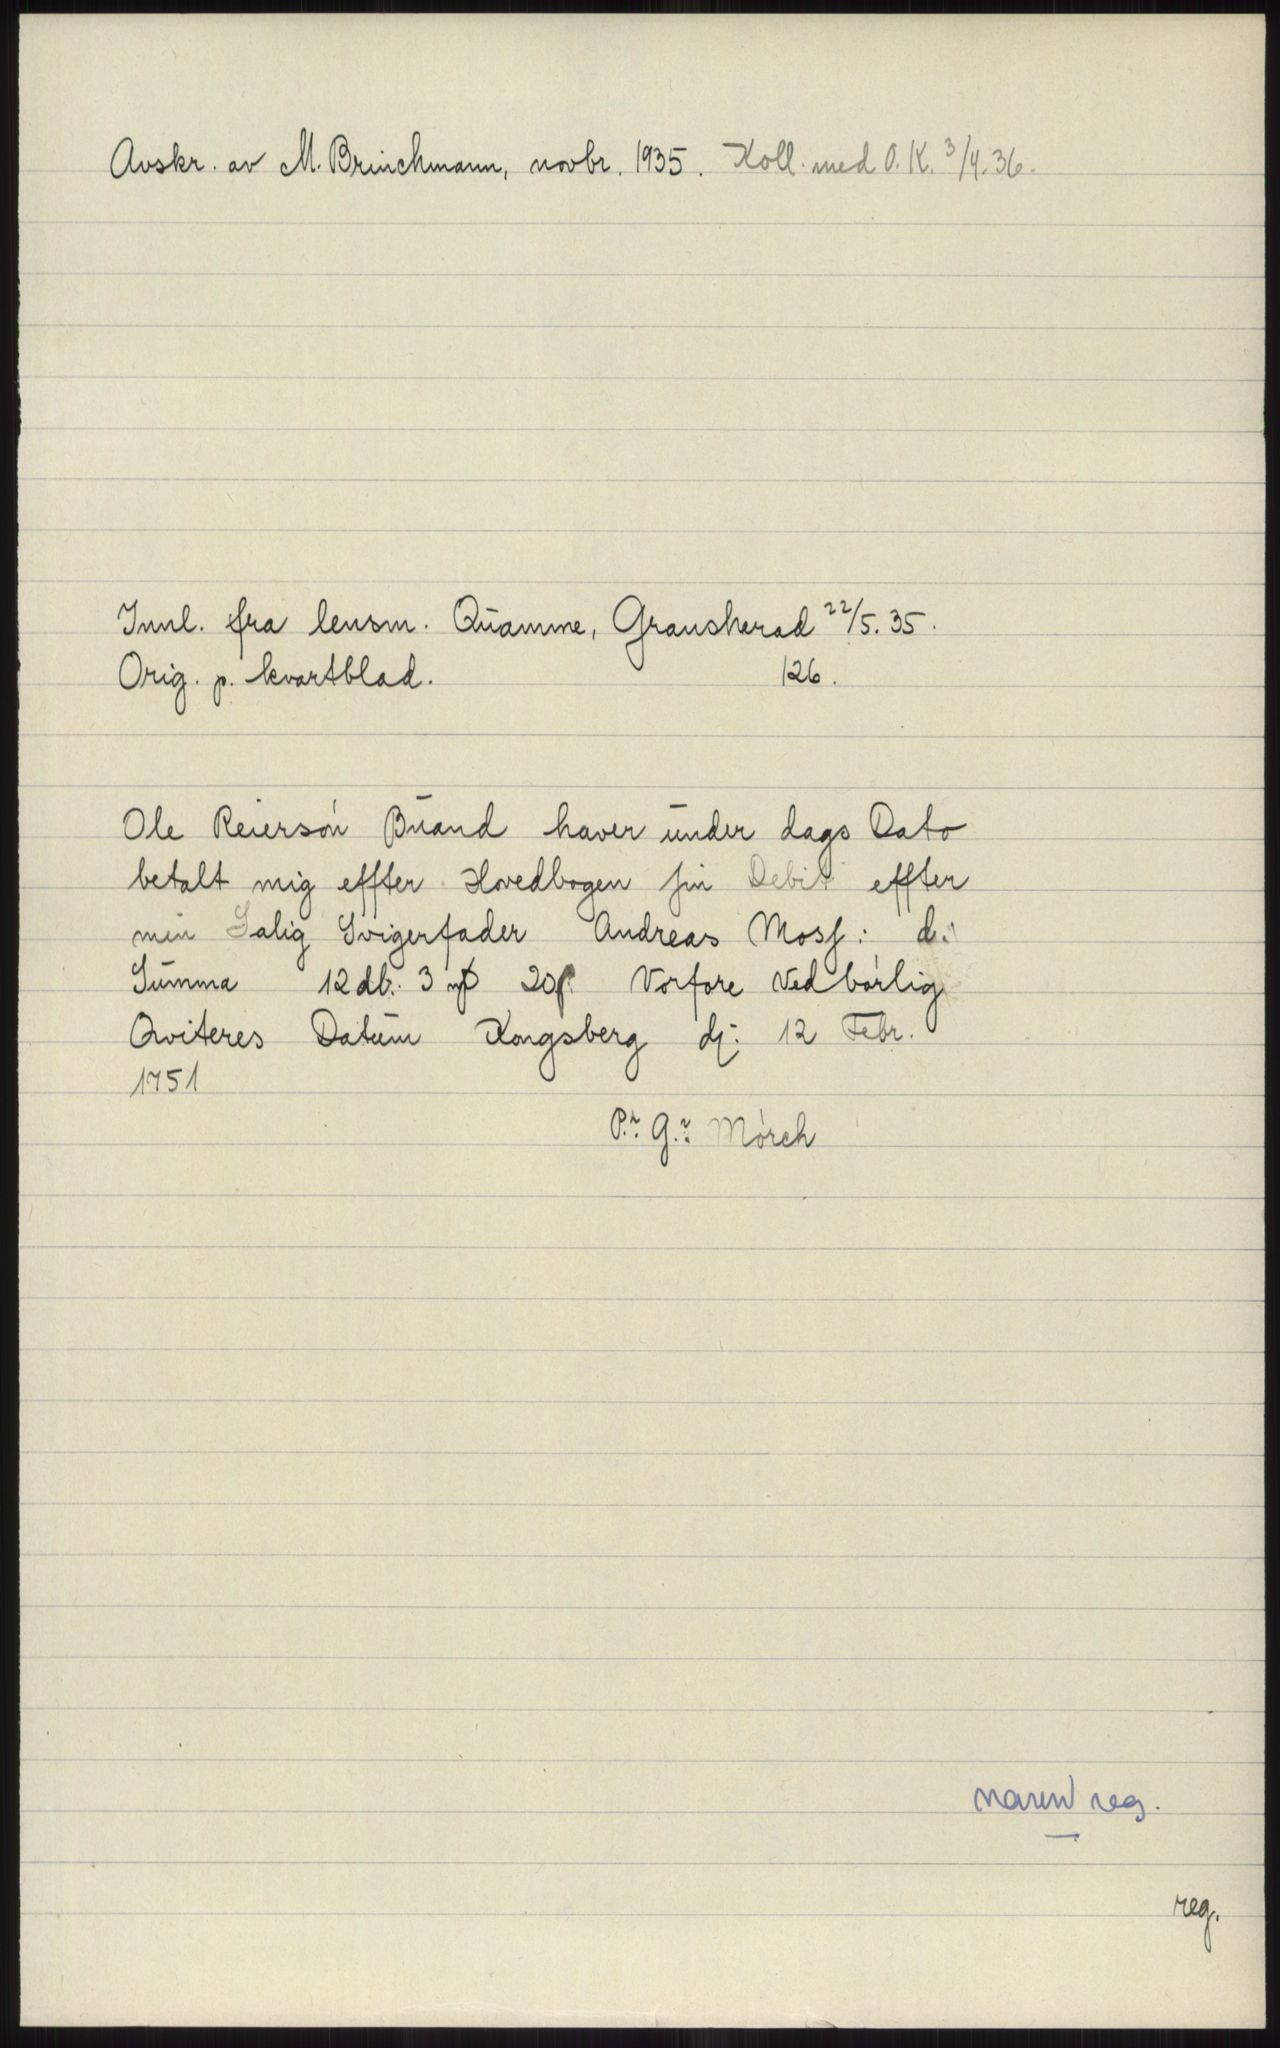 Avskr. av M. Brinchmann, novbr. 1935. Koll. med O.K. 3/4.36.
Innl. fra lensm. Quamme, Gransherad 22/5.35.
Orig. p. kvartblad. 126.
Ole Reiersón Buand haver under dags Dato
betalt mig effter Hovedbogen sin Debit effter
min Salig Svigerfader Andreas Mosf: d:
Summa 12 db: 3 20 Vorfore Ved bórlig
Qviteres Datum Kongsberg dj: 12 Febr.
1751
P:r G:r Mórch
navn reg.
reg.